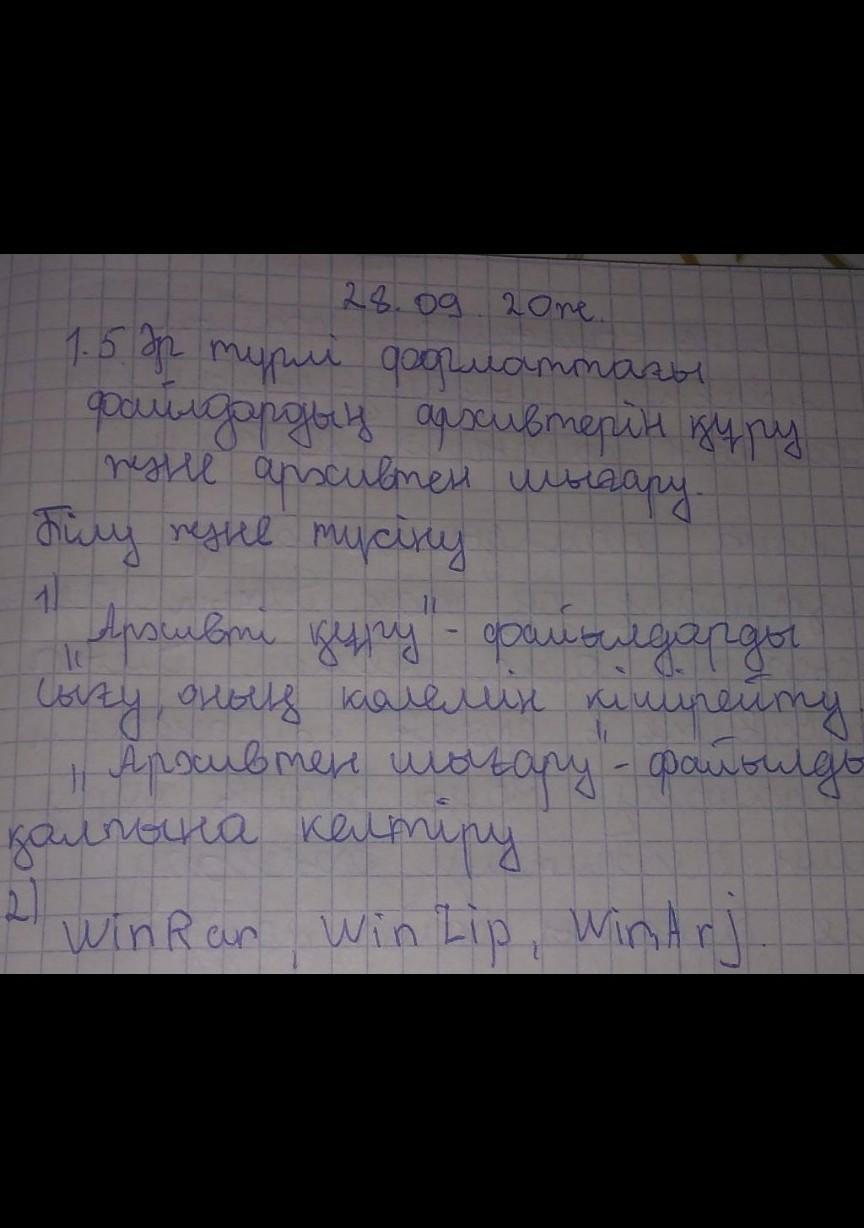 28.09.20ж.
1.5 Әр түрлі форматтағы
файлдардың архивтерін құру
және архивтен шығару.
Білу және түсіну
1)
"Архивті құру" - файылдарды
сығу, оның көлемін кішірейту
"Архивтен шығару" - файылды
қалпына келтіру
2)
WinRar, WinZip, WinArj.